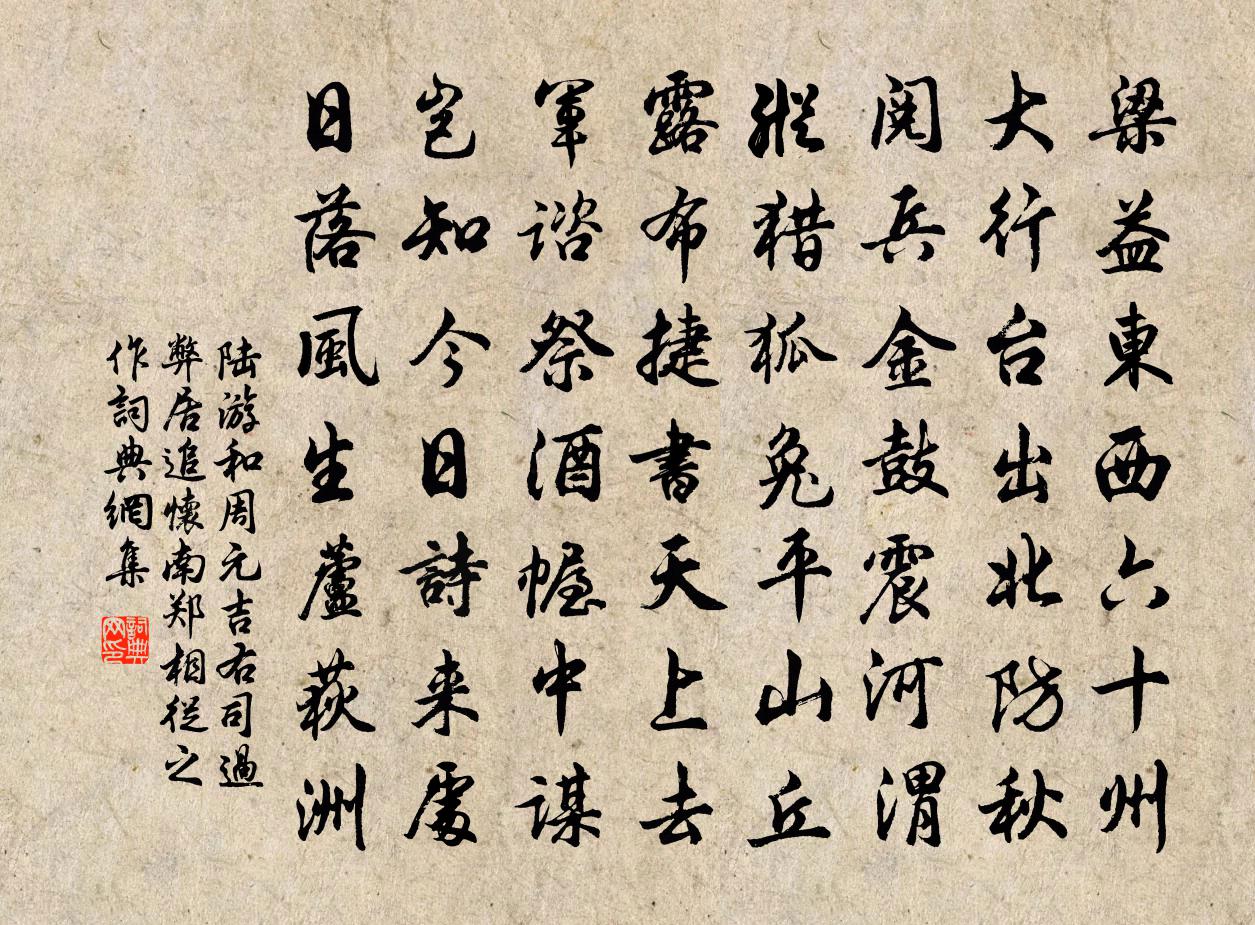 梁益東西六十州
大行台出北防秋
閱兵金鼓震河渭
縱猎狐兔平山丘
露布捷書天上去
軍諮祭酒幄中謀
岂知今日詩来處
日落風生蘆荻洲
陆游和周元吉右司過
弊居追懷南郑相從之
作詞典網集
詞典网印